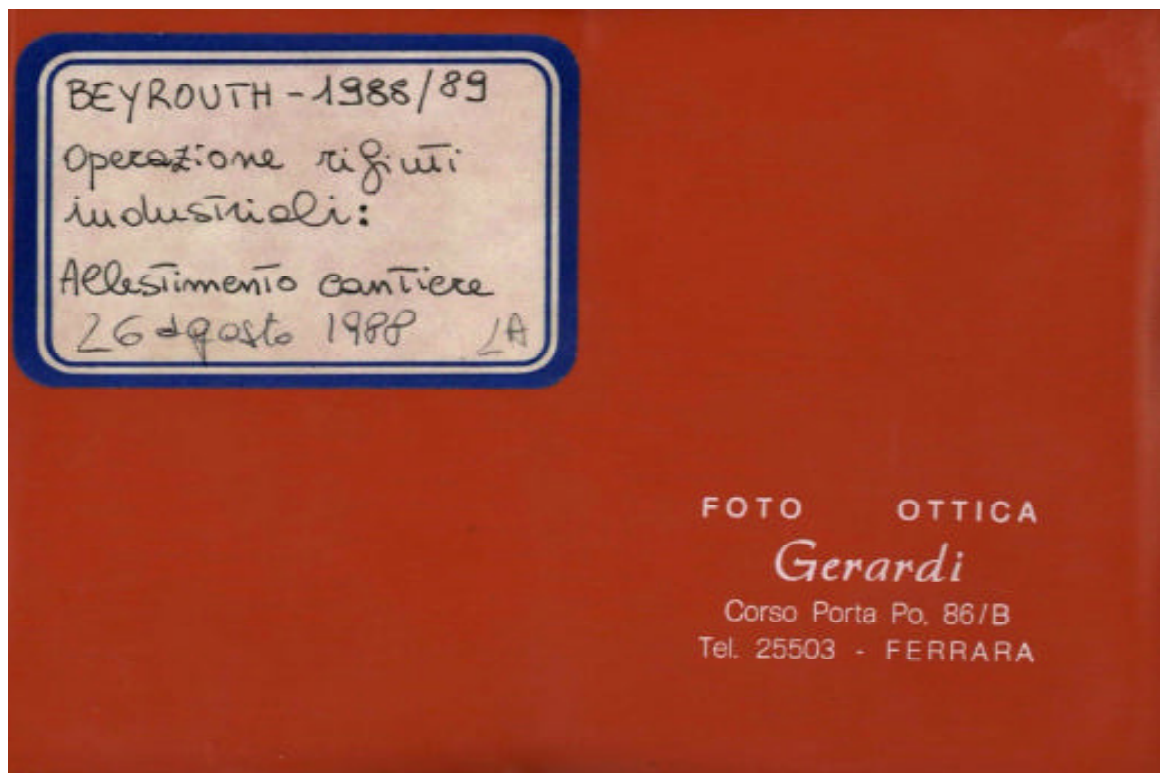 BEYROUTH - 1988/89
Operazione rifiuti
industriali:
Allestimento cantiere
26 agosto 1988 LA
FOTO OTTICA
Gerardi
Corso Porta Po, 86/B
Tel. 25503 - FERRARA